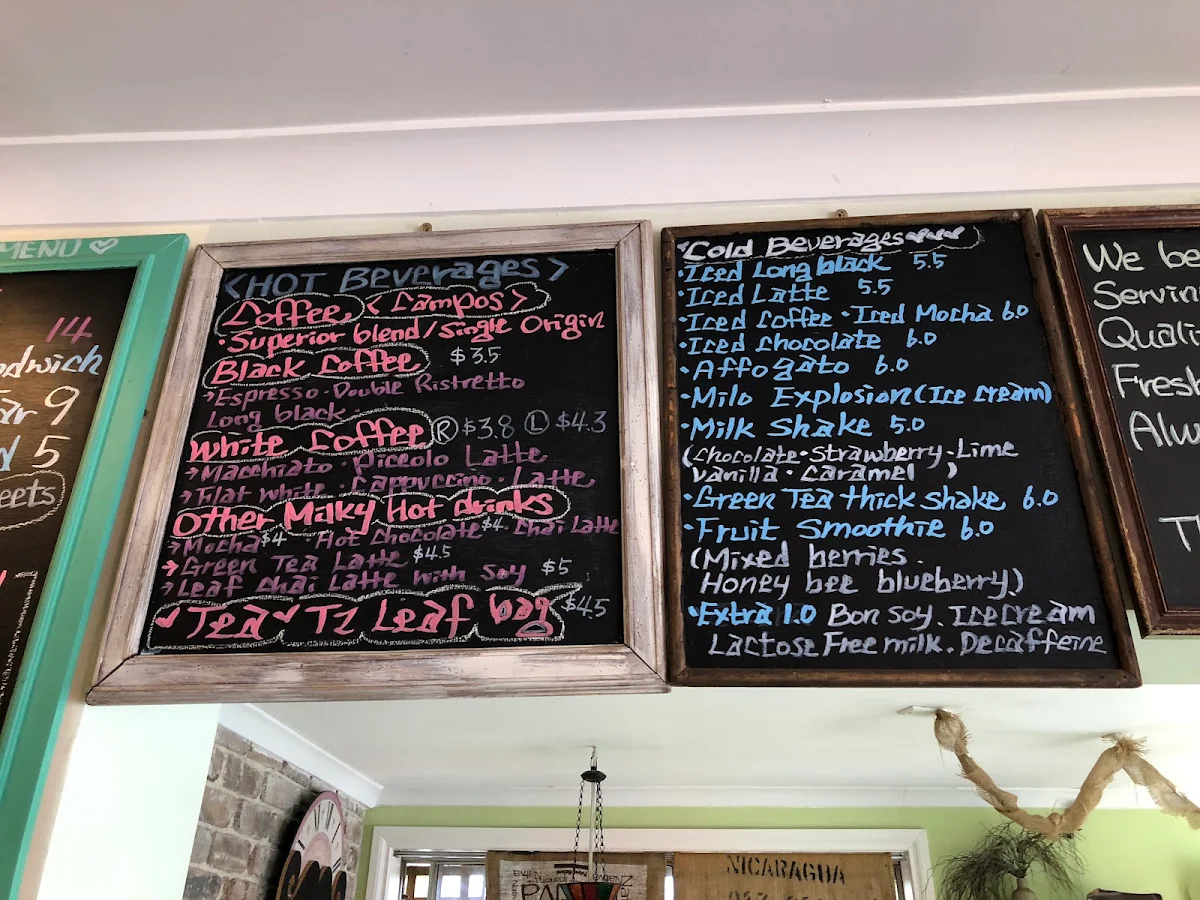 MENU
14
9
5
<HOT Beverages>
Coffee <Campos>
·Superior blend/single Origin
Black Coffee $3.5
→Espresso·Double Ristretto
Long black.
White Coffee Ⓡ $3.8 Ⓛ $4.3
→Macchiato·Piccolo Latte
→Flat white·Cappuccino·Latte
Other Milky Hot drinks
→Mocha $4 · Hot Chocolate $4· Chai Latte
→Green Tea Latte $4.5
→Leaf chai Latte with Soy $5
✓Tea✓ T2 Leaf bag $4.5
Cold Beverages
·Iced Long black 5.5
·Iced Latte 5.5
·Iced Coffee·Iced Mocha 6.0
·Iced chocolate 6.0
·Affogato 6.0
·Milo Explosion(Ice cream)
·Milk Shake 5.0
(chocolate·Strawberry·Lime
vanilla·caramel )
·Green Tea thick shake 6.0
·Fruit Smoothie 6.0
(Mixed berries.
Honey bee blueberry)
·Extra 1.0 Bon soy. Icecream
Lactose Free milk. Decaffeine
We be
Servin
Quali
Fresh
Alw
T
NICARAGUA